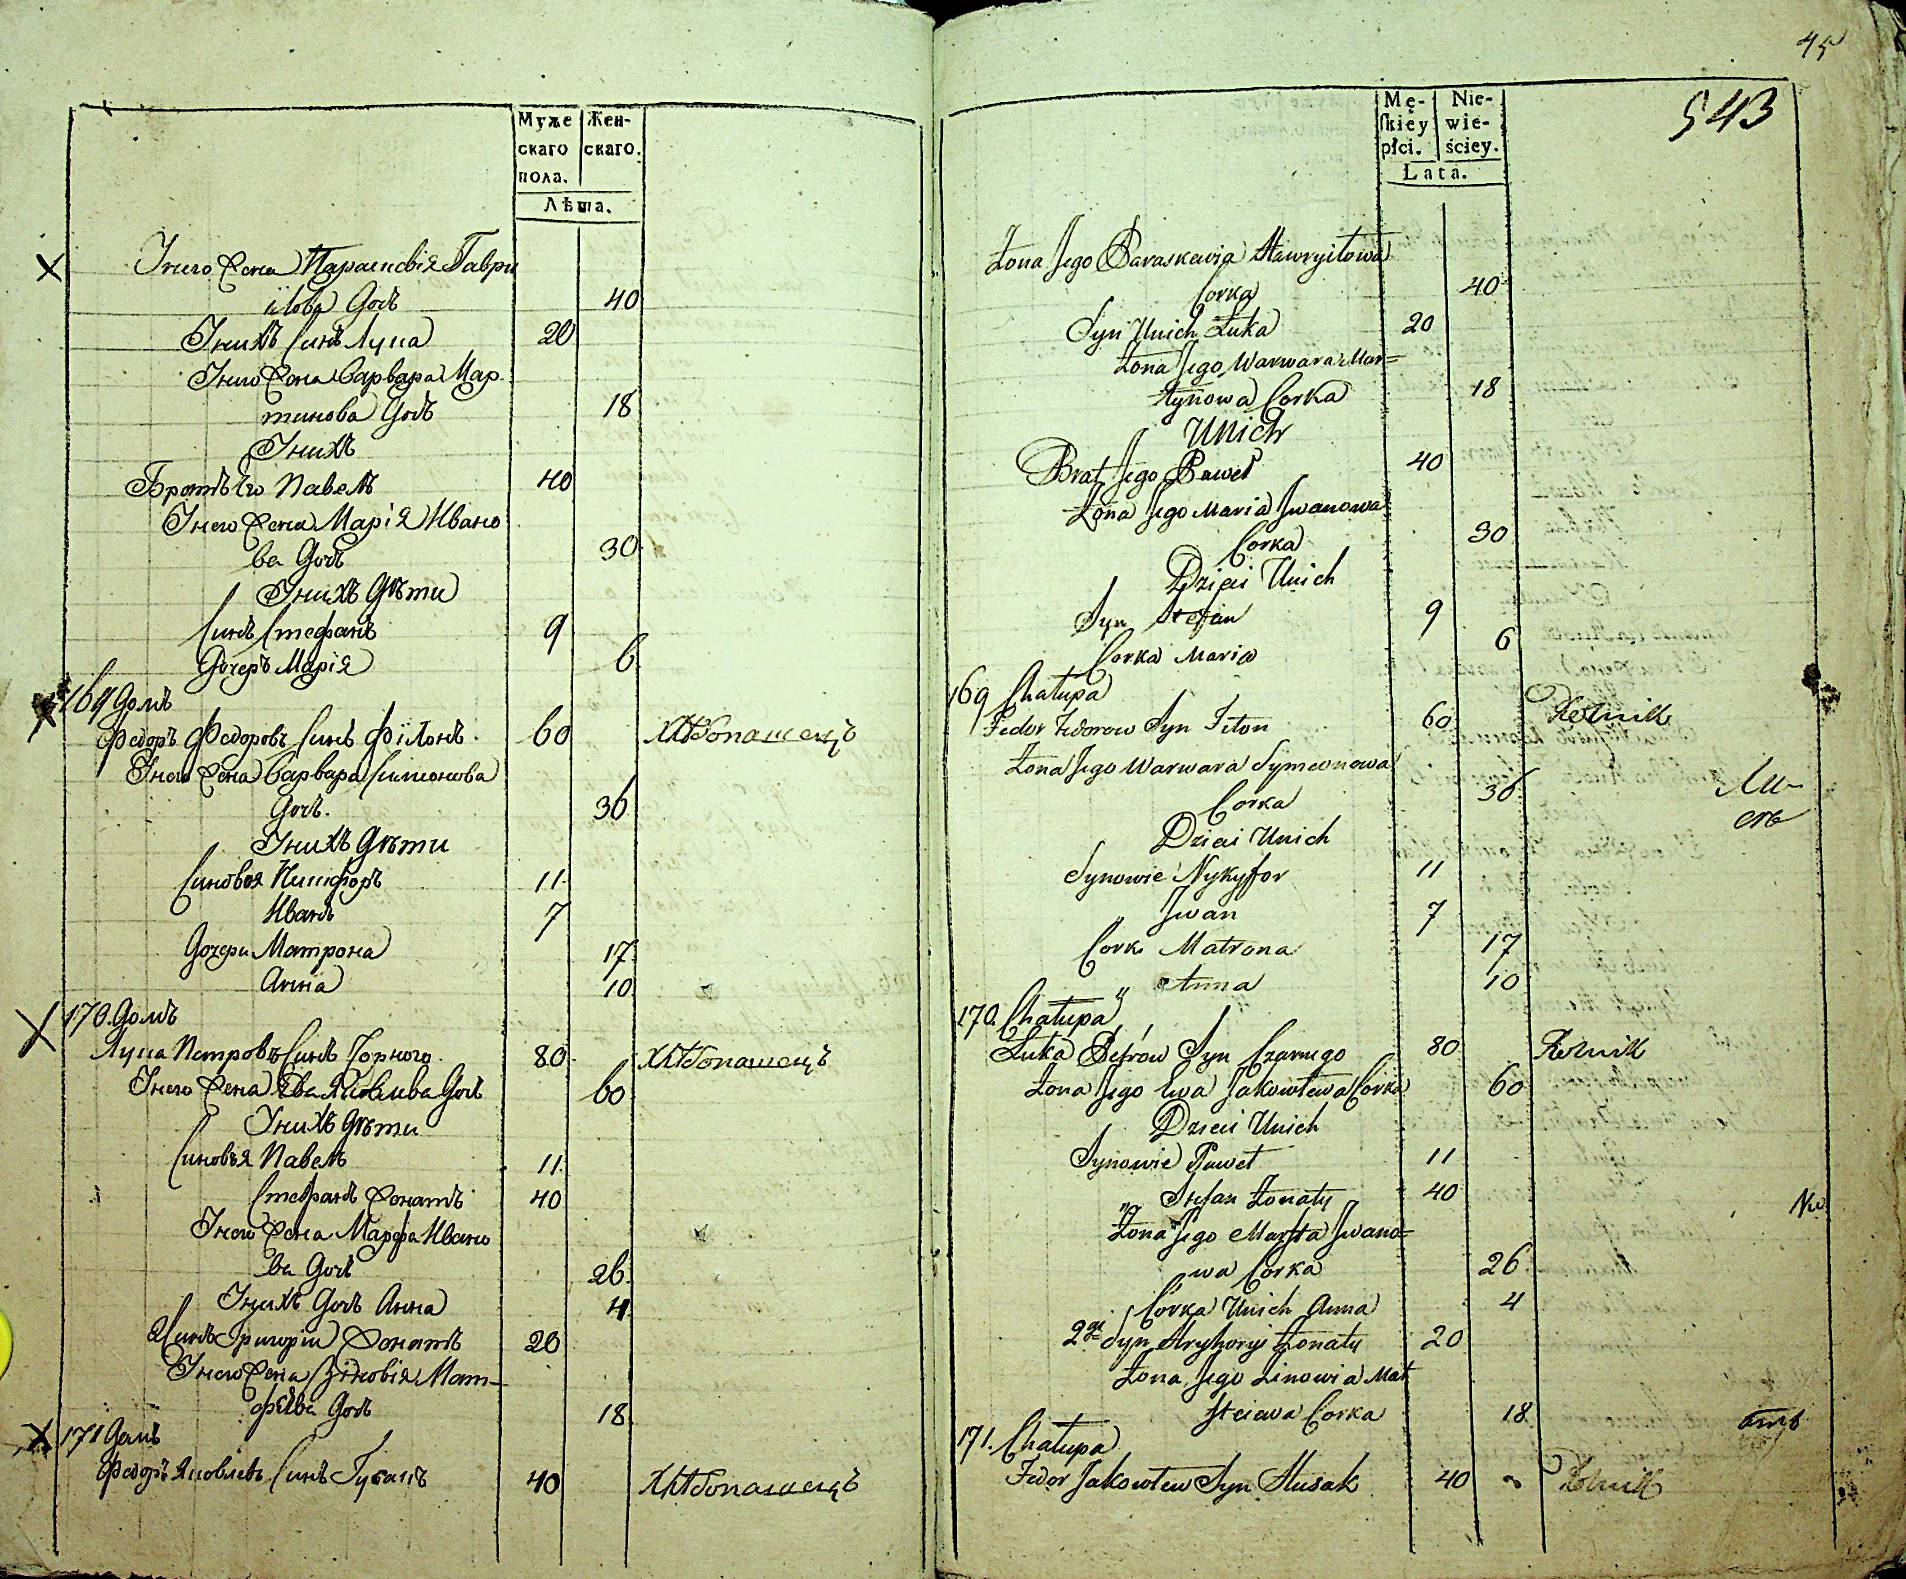 Муже
скаго
пола.
Жен-
скаго.
Лѣта.
Унего Жена Параскевія Гаври
илова Дочь 40
Унихъ Синъ Лука 20
Унего Жена Варвара Мар
тинова Дочь 18
Унихъ
Братъ Его Павелъ 40
Унего Жена Марія Ивано
ва Дочь 30
Унихъ Дѣти
Синъ Стефанъ 9
Дочерь Марія 6
169 Домъ
Федоръ Федоровъ Синъ Філонъ 60 Хлѣбопашецъ
Унего Жена Варвара Симонова
Дочь. 36
Унихъ Дѣти
Синовья Никифоръ 11
Иванъ 7
Дочери Матрона 17
Анна 10
170. Домъ
Лука Петровъ Синъ Чорного 80 Хлѣбопашецъ
Унего Жена Ева Яковлева Дочь 60
Унихъ Дѣти
Синовья Павелъ 11
Стефанъ Жонатъ 40
Унего Жена Марфа Ивано
ва Дочь 26
Унихъ Дочь Анна 4
2 Синъ Григорій Жонатъ 20
Унего Жена Зіновія Мат-
фѣева Дочь 18
171 Домъ
Федоръ Яковлевъ Синъ Гусакъ 40 Хлѣбопашецъ
45
543
Mę-
skiey
płci.
Nie-
wie-
ściey.
Lata.
Żona Jego Paraskewia Hawryiłowa
Corka 40
Syn Unich Łuka 20
Żona Jego Warwara Mar=
tynowa Corka 18
Unich
Brat Jego Paweł 40
Żona Jego Maria Jwanowa
Corka 30
Dzieci Unich
Syn Stefan 9
Corka Maria 6
169 Chałupa
Fedor Fedorow Syn Fiłon 60 Rolnik
Żona Jego Warwara Symeonowa
Corka 36
Dzieci Unich
Synowie Nykyfor 11
Jwan 7
Cork. Matrona 17
Anna 10
170. Chałupa
Łuka Petrów Syn Czarnego 80 Rolnik
Żona Jego Ewa Jakowlewa Corka 60
Dzieci Unich
Synowie Paweł 11
Stefan Żonaty 40
Żona Jego Marfta Jwano=
wa Corka 26
Corka Unich Anna 4
2gi Syn Hryhoryi Żonaty 20
Żona Jego Zinowia Mat
fteiewa Corka 18
171. Chałupa
Fedor Jakowlew Syn Husak 40 Rolnik